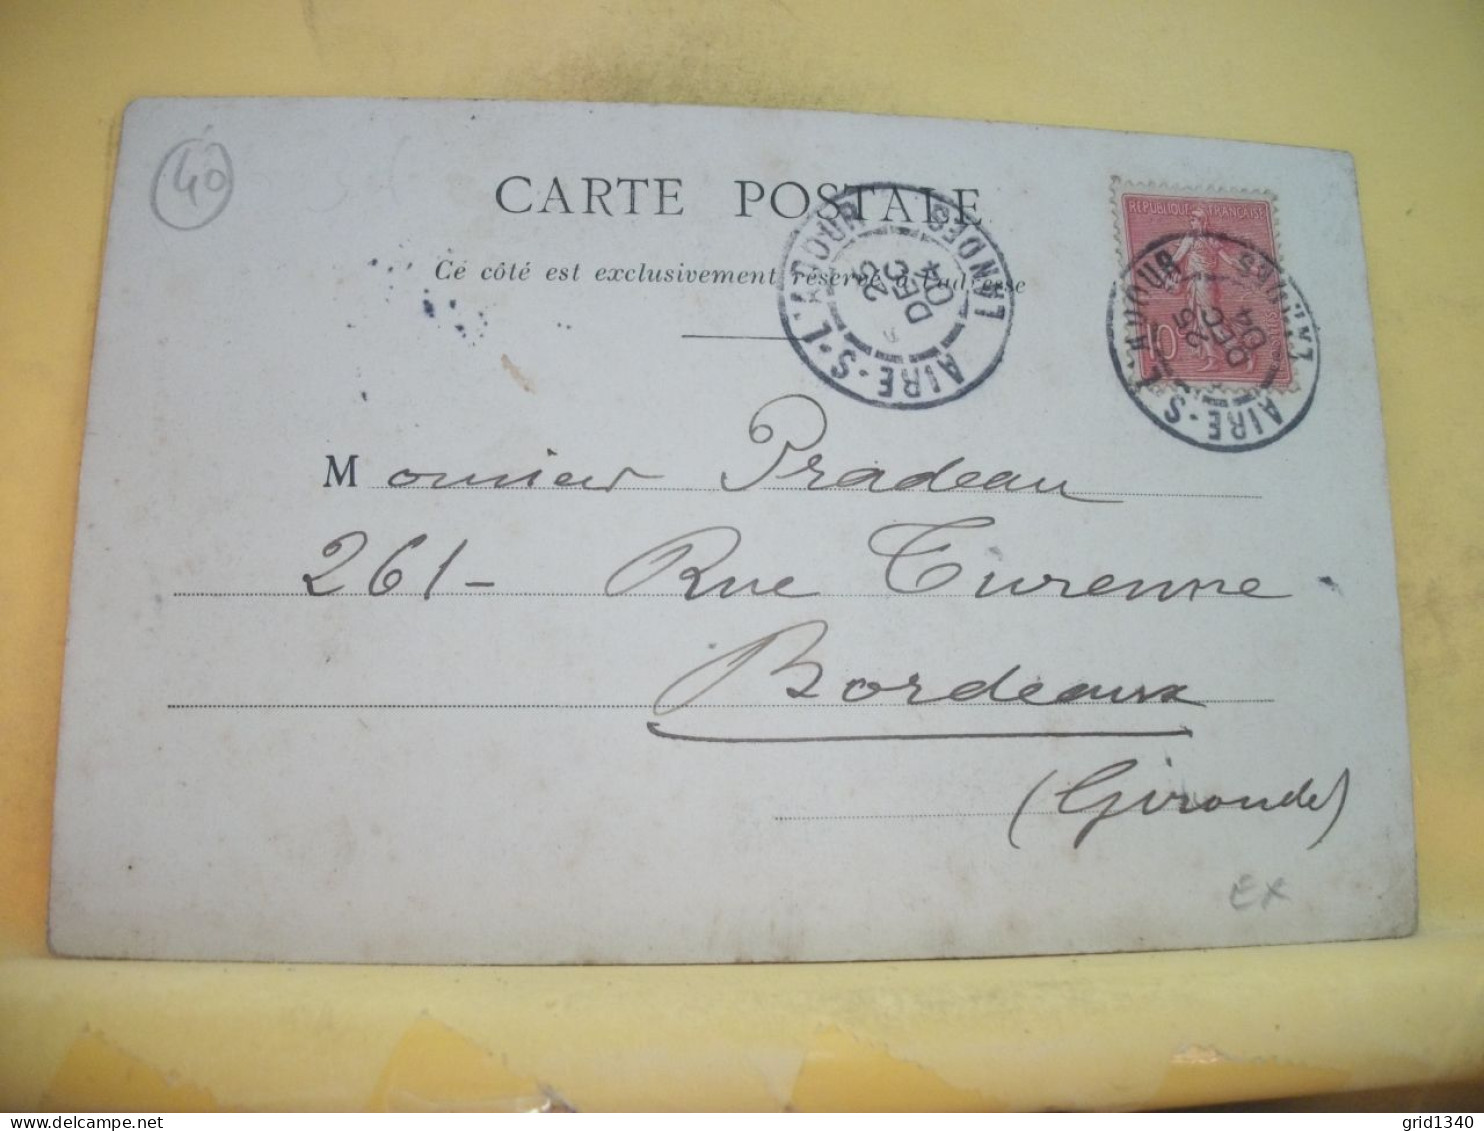 40
CARTE POSTALE
Ce côté est exclusivement réservé à l'adresse
RÉPUBLIQUE FRANÇAISE
10
AIRE-S-L'ADOUR
LANDES
25
DEC
04
AIRE-S-L'ADOUR
LANDES
25
DEC
04
Monsieur Pradeau
261- Rue Turenne
Bordeaux
(Gironde)
EX
grid1340